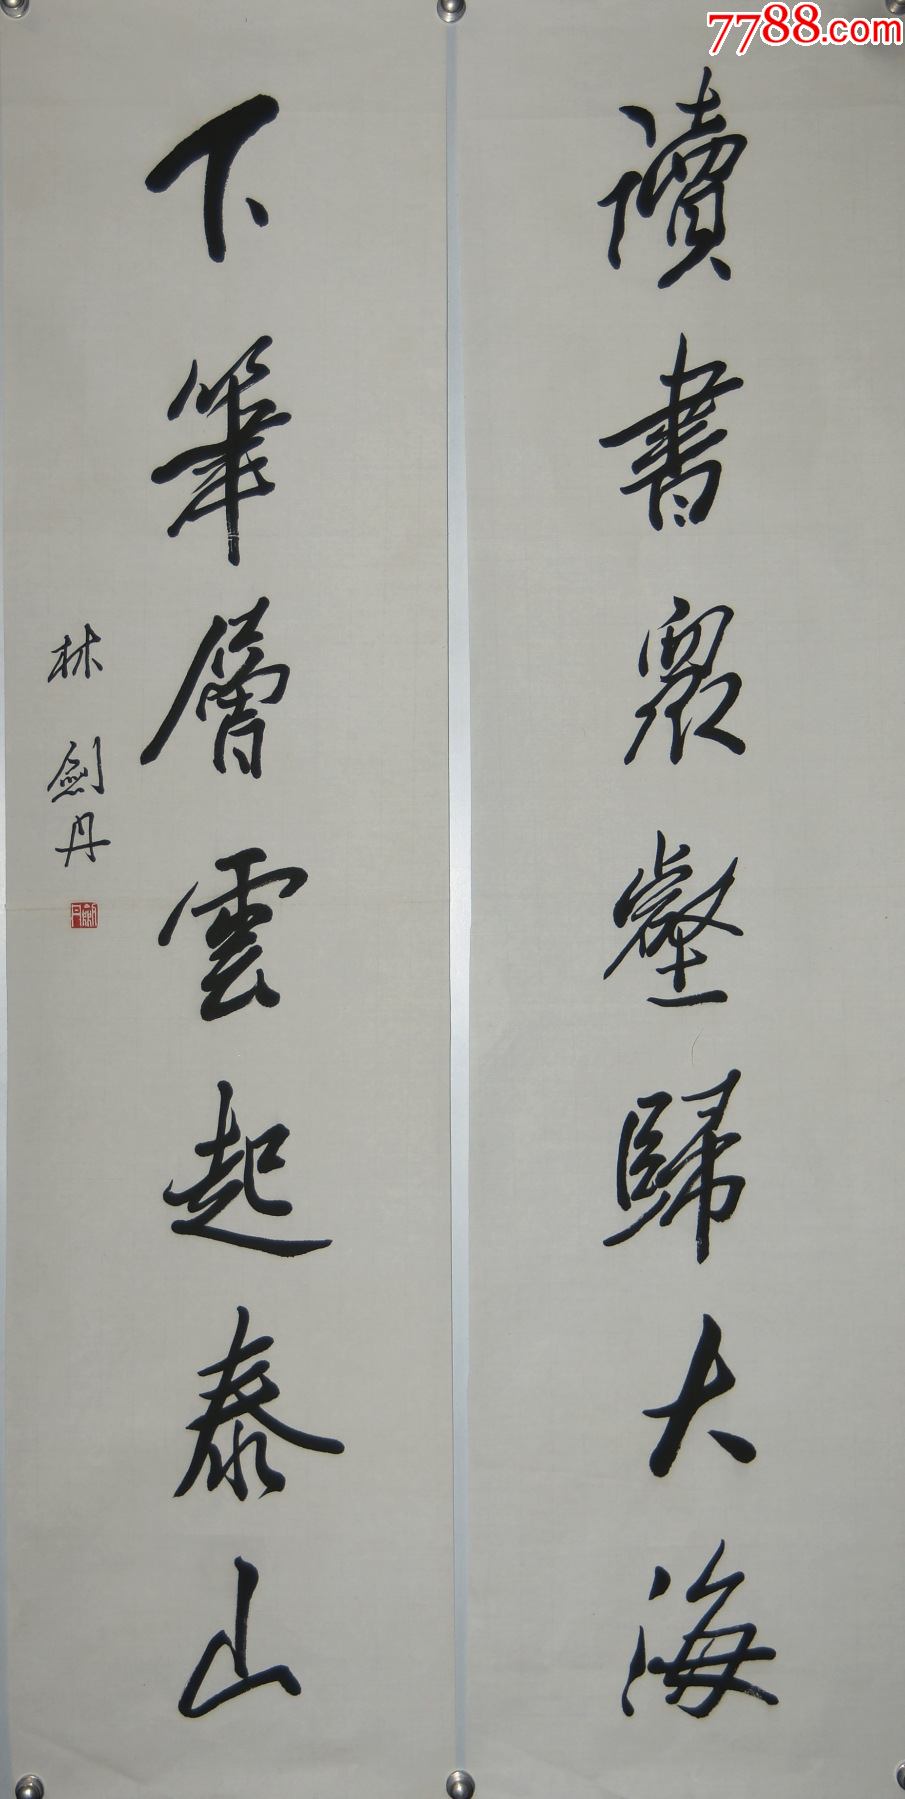 7788.com
讀書眾壑歸大海
下筆層雲起泰山
林劍丹
劍丹